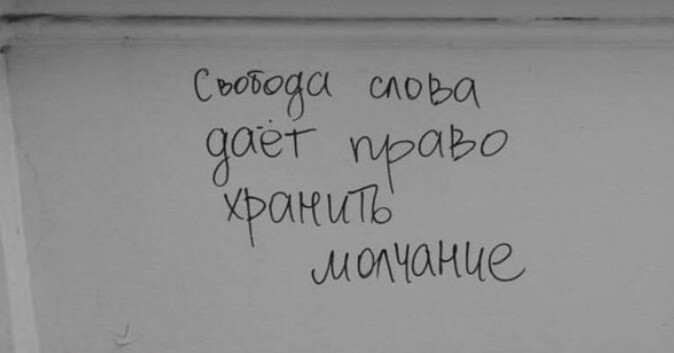 Свобода слова
даёт право
хранить
молчание